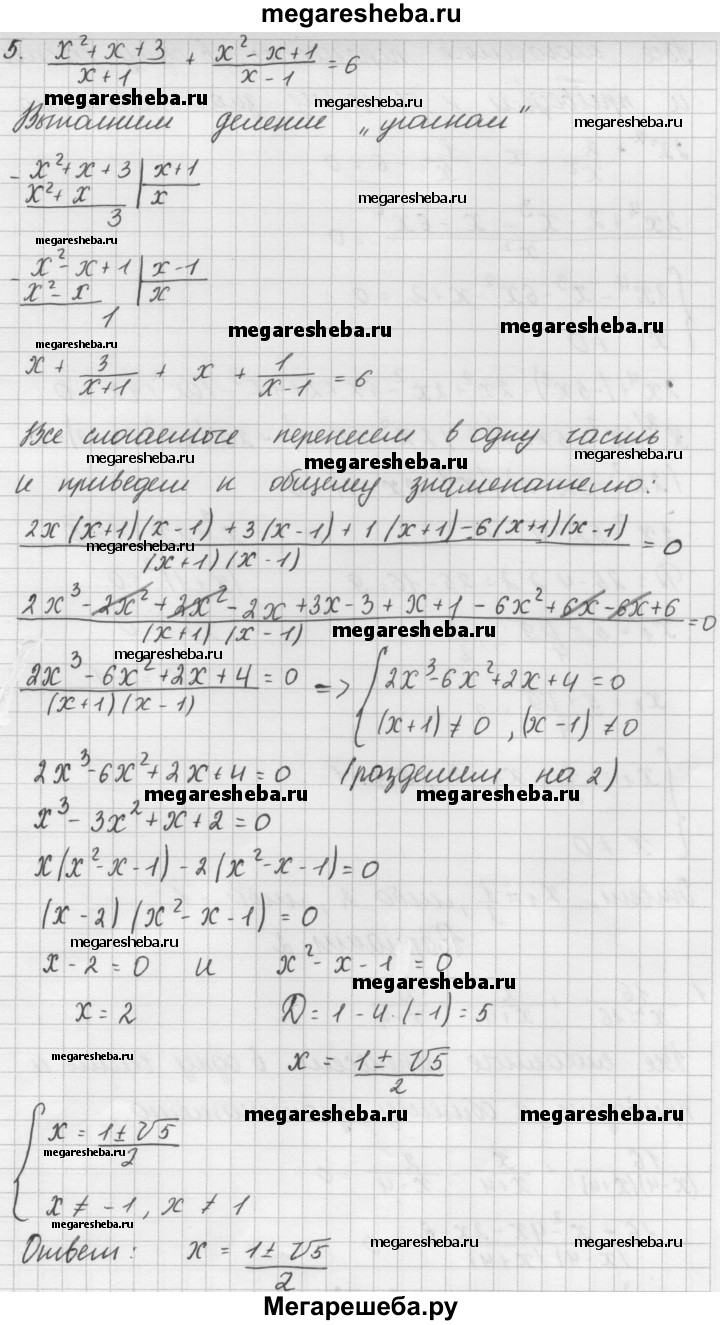 megaresheba.ru
5. (x²+x+3)/(x+1) + (x²-x+1)/(x-1) = 6
megaresheba.ru megaresheba.ru
Выполним деление „уголком"
- x²+x+3 | x+1
x²+x | x megaresheba.ru
3
megaresheba.ru
- x²-x+1 | x-1
x²-x | x
1
megaresheba.ru megaresheba.ru
megaresheba.ru
x + 3/(x+1) + x + 1/(x-1) = 6
Все слагаемые перенесем в одну часть
megaresheba.ru megaresheba.ru megaresheba.ru
и приведем к общему знаменателю:
(2x(x+1)(x-1)+3(x-1)+1(x+1)-6(x+1)(x-1))/((x+1)(x-1)) = 0
megaresheba.ru megaresheba.ru
(2x³-2x²+2x²-2x+3x-3+x+1-6x²+6x-6x+6)/((x+1)(x-1)) = 0
megaresheba.ru megaresheba.ru
(2x³-6x²+2x+4)/((x+1)(x-1)) = 0 => { 2x³-6x²+2x+4=0
(x+1)≠0, (x-1)≠0
2x³-6x²+2x+4=0 (разделим на 2)
megaresheba.ru megaresheba.ru
x³-3x²+x+2=0
x(x²-x-1)-2(x²-x-1)=0
(x-2)(x²-x-1)=0
megaresheba.ru
x-2=0 и x²-x-1=0
megaresheba.ru
x=2 D=1-4·(-1)=5
megaresheba.ru x = (1±√5)/2
megaresheba.ru megaresheba.ru
{ x = (1±√5)/2
megaresheba.ru
x≠-1, x≠1
megaresheba.ru
Ответ: x = (1±√5)/2
megaresheba.ru megaresheba.ru
Мегарешеба.ру